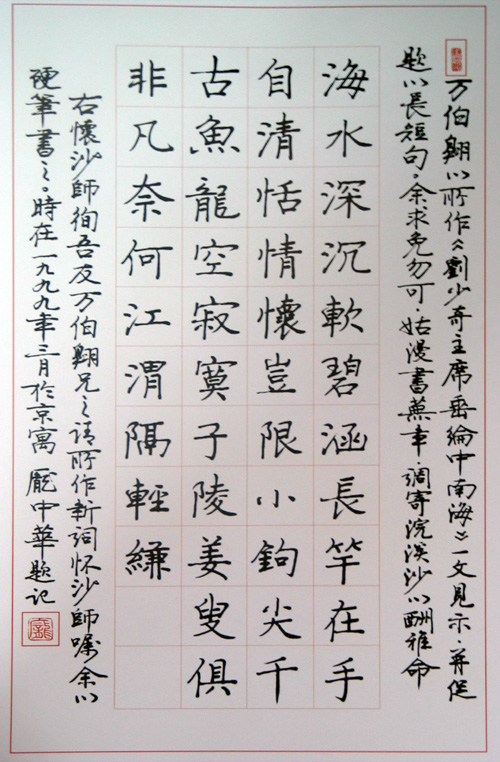 万伯翱以所作《劉少奇主席垂綸中南海》一文見示.并促
题以長短句。余求免勿可.姑漫書蕪章.調寄浣溪沙以酬雅命
海水深沉軟碧涵長竿在手
自清恬情懷豈限小鉤尖千
古魚龍空寂寞子陵姜叟俱
非凡奈何江渭隔輕縑
右懷沙師徇吾友万伯翱兄之請所作新詞怀沙師嘱余以
硬筆書之。時在一九九九年三月於京寓龐中華題记
龐